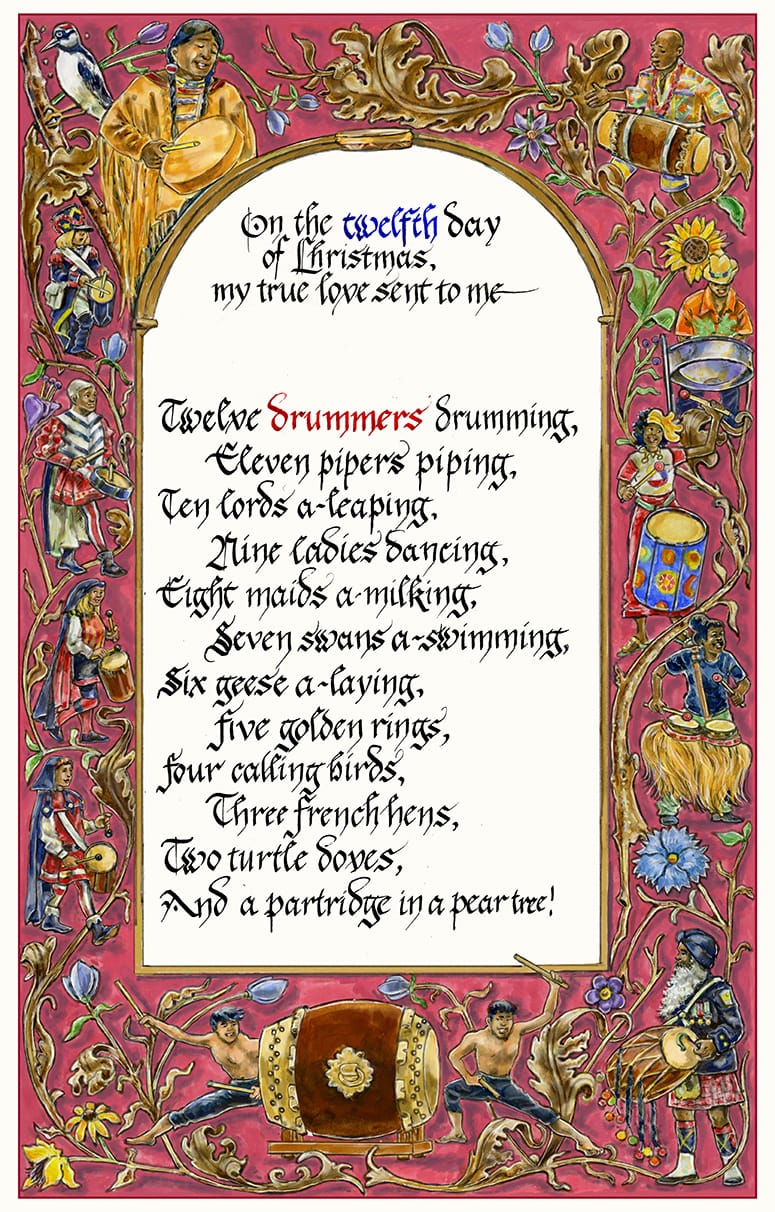 On the twelfth day
of Christmas,
my true love sent to me—
Twelve drummers drumming,
Eleven pipers piping,
Ten lords a-leaping,
Nine ladies dancing,
Eight maids a-milking,
Seven swans a-swimming,
Six geese a-laying,
five golden rings,
four calling birds,
Three french hens,
Two turtle doves,
And a partridge in a pear tree!